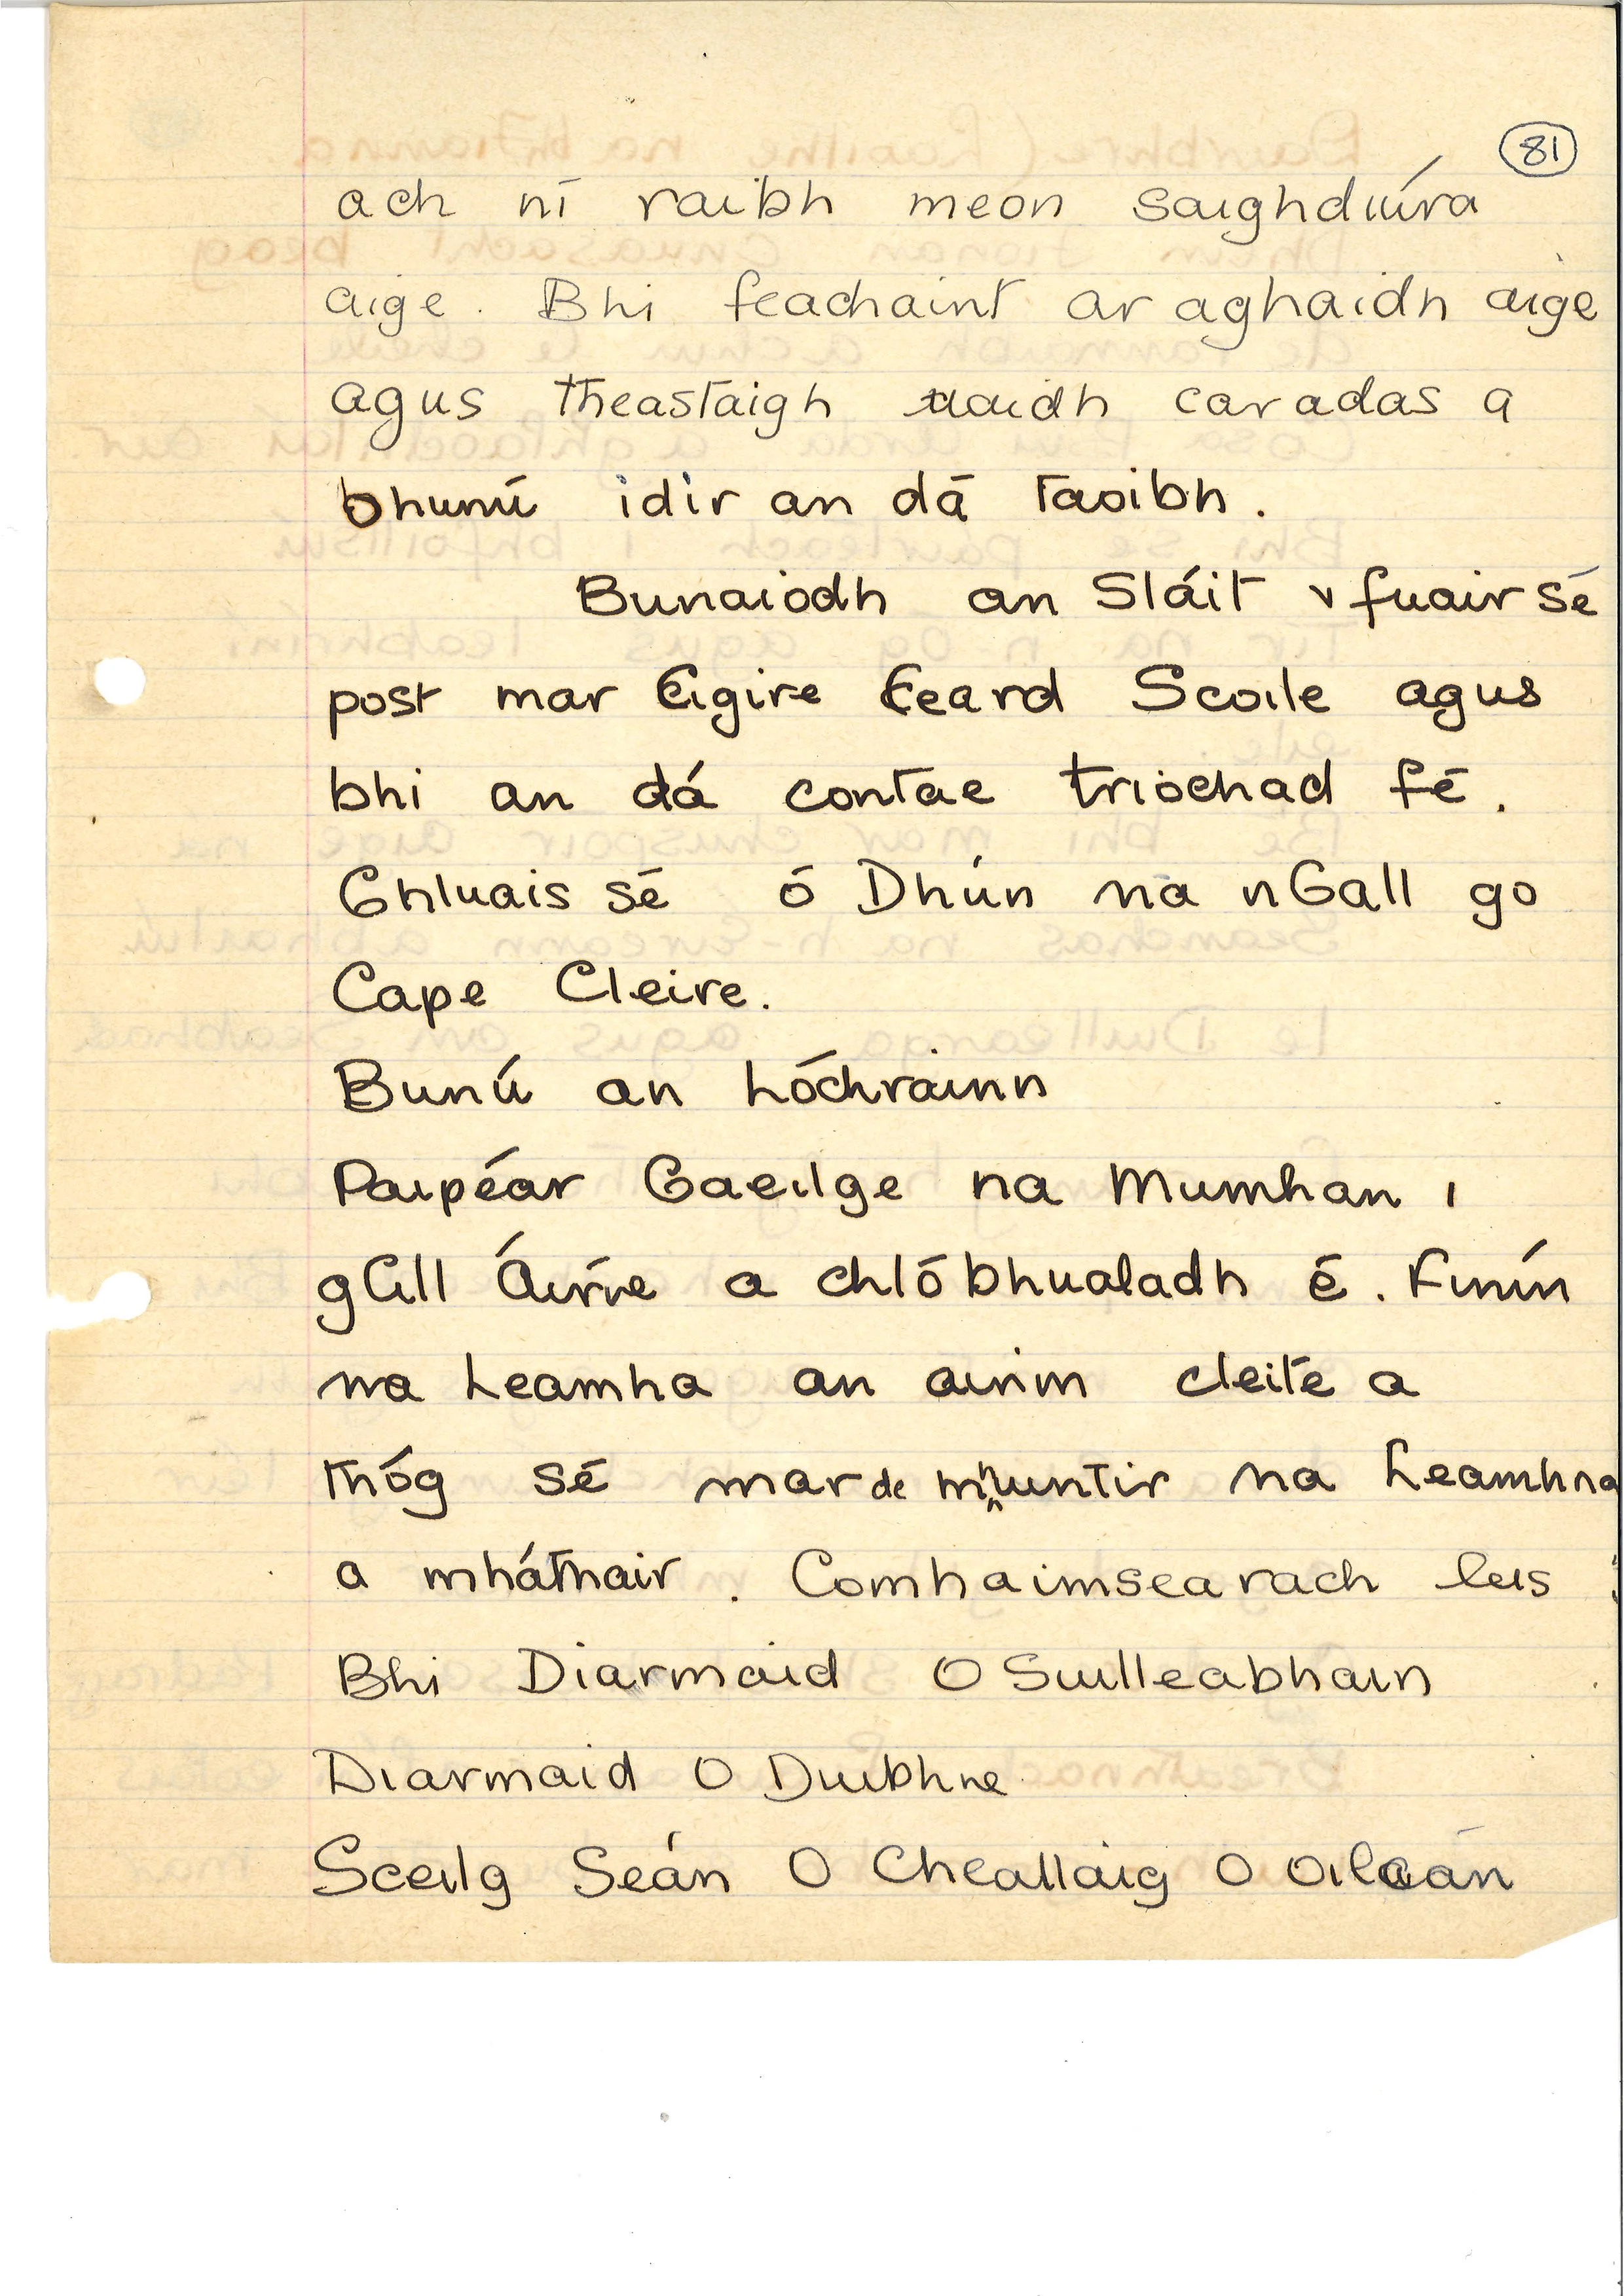 81
ach ní raibh meon saighdiúra
aige. Bhi feachaint ar aghaidh aige
agus theastaigh uaidh caradas a
bhunú idir an dá taoibh.
Bunaiodh an Stáit & fuair sé
post mar Cigire Ceard Scoile agus
bhi an dá contae triochad fé.
Ghluais sé ó Dhún na nGall go
Cape Cleire.
Bunú an Lóchrainn
Paipéar Gaeilge na Mumhan i
gCill Áirne a chlóbhualadh é. Finín
na Leamha an ainm cleite a
thóg sé mar de mhuntir na Leamhna
a mháthair. Comhaimsearach leis
Bhi Diarmaid O Suilleabhain
Diarmaid O Duibhne
Sceilg Seán O Cheallaig O Oileán